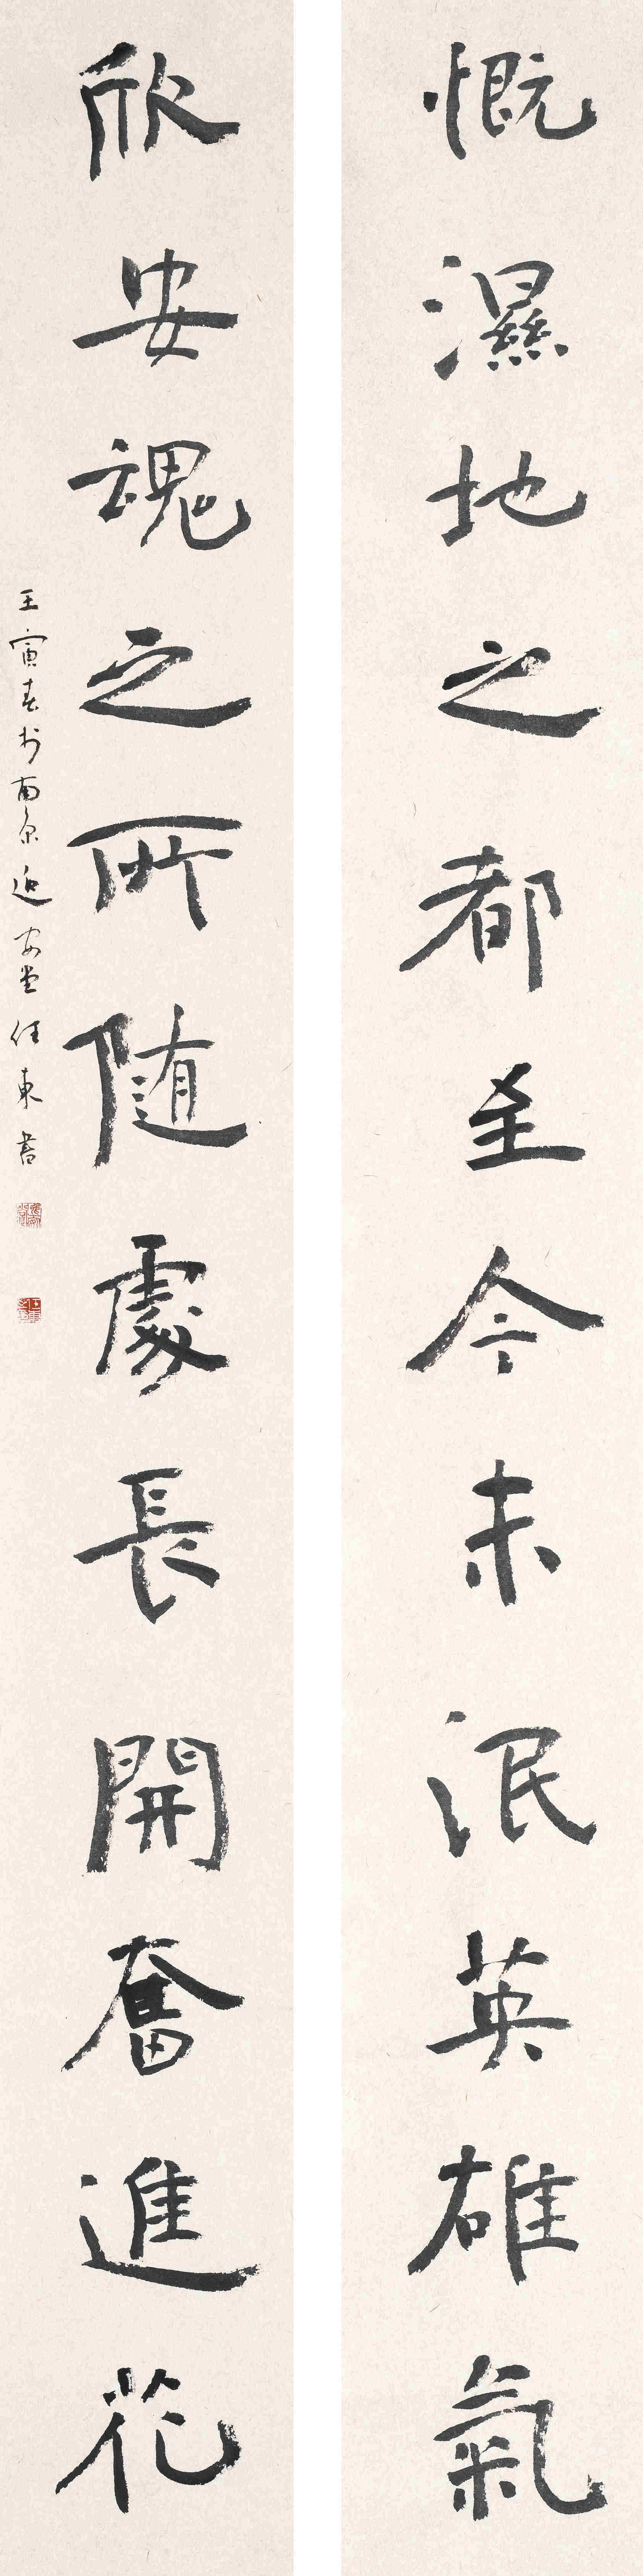 慨濕地之都至今未泯英雄氣
欣安魂之所随處長開奮進花
壬寅春於南京近安堂任東書